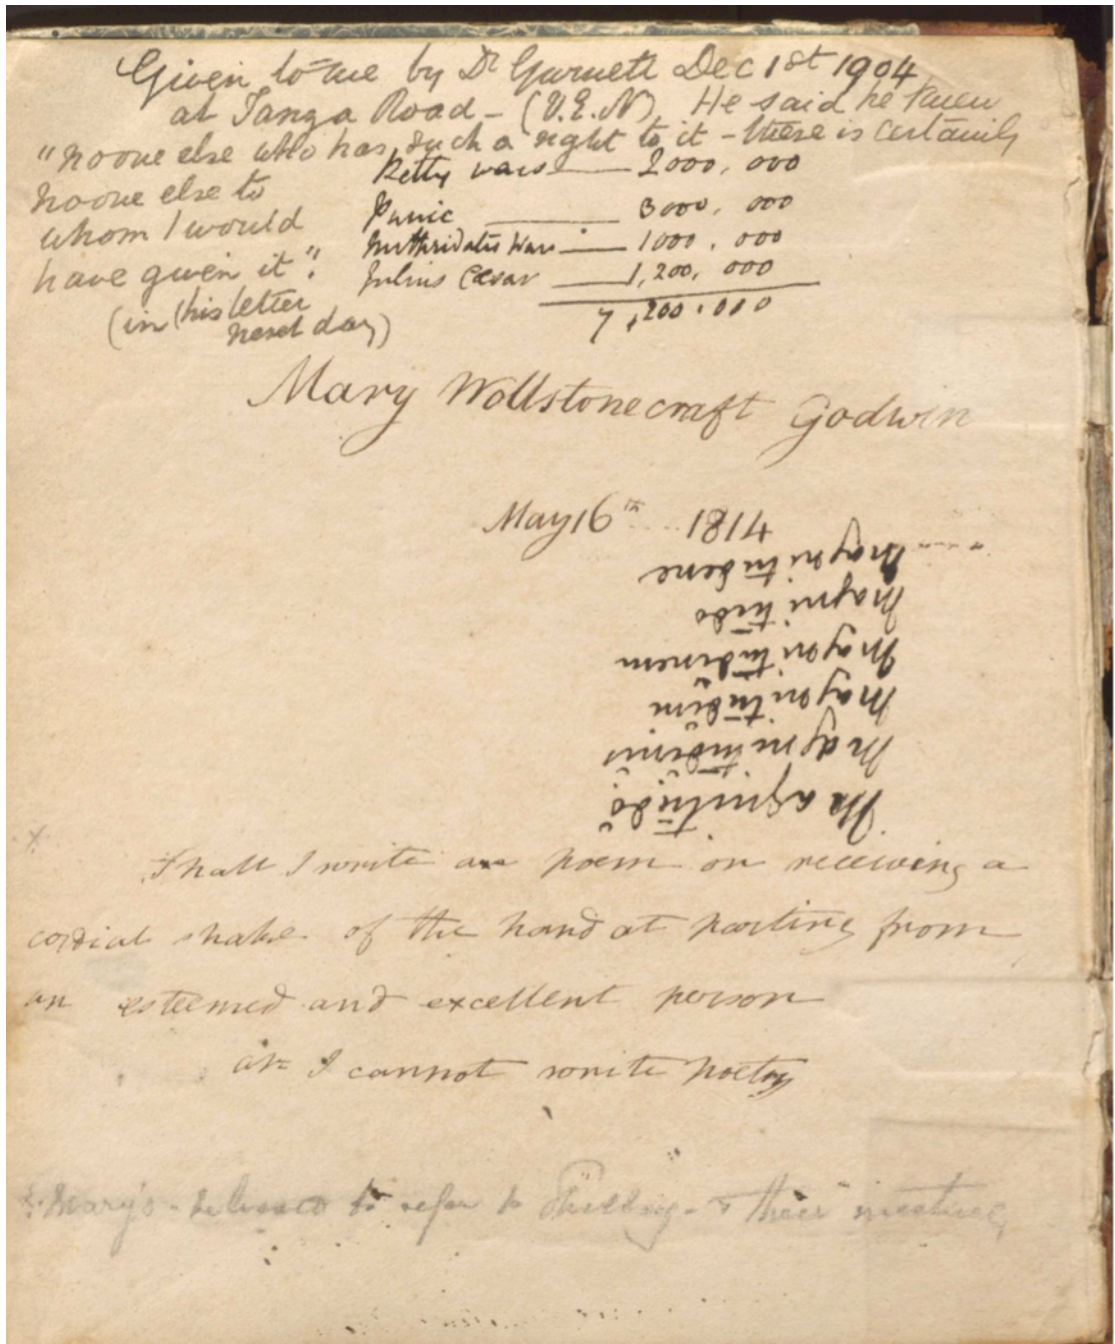 Given to me by Dr Garnett Dec 1st 1904
at Tanza Road - (V.E.N) He said he knew
"no one else who has such a right to it - there is certainly
no one else to
whom I would
have given it".
(in his letter
next day)
Petty wars 2000,000
Punic 3000,000
Mithridates Wars 1000,000
Julius Cæsar 1,200,000
7,200,000
Mary Wollstonecraft Godwin
May 16th 1814
Magnitudo
Magnitudinis
Magnitudini
Magnitudinem
Magnitudo
Magnitudene
x
Shall I write a poem on receiving a
cordial shake of the hand at parting from
an esteemed and excellent person
ah I cannot write poetry
Mary's - believed to refer to Shelley - & their meeting